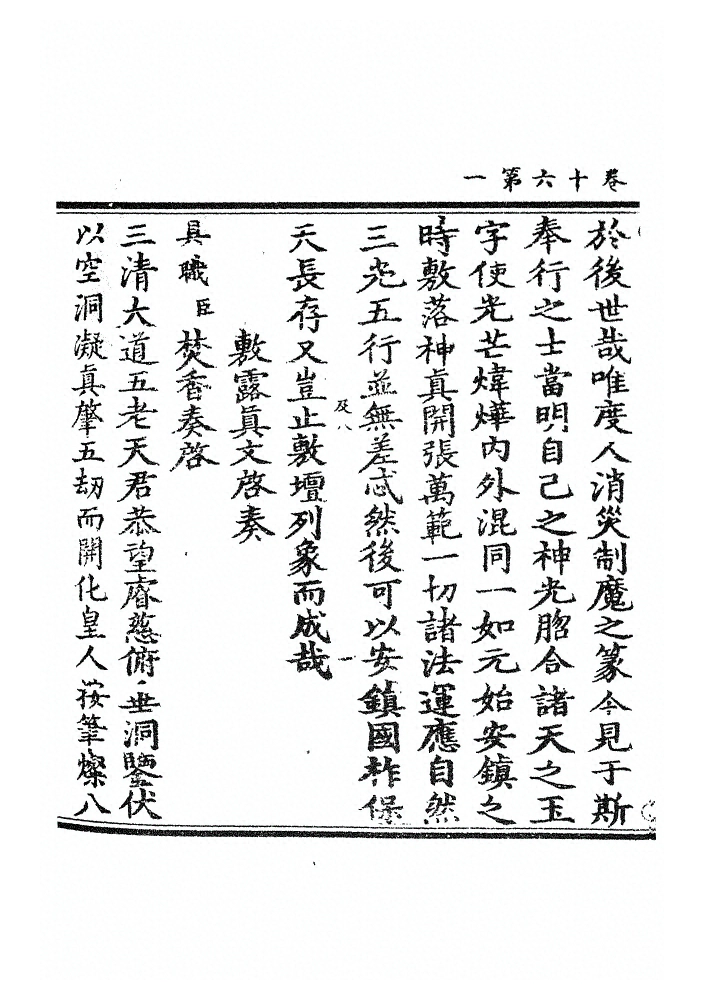 卷十六第一
於後世哉唯度人消災制魔之篆今見于斯
奉行之士當明自己之神光脗合諸天之玉
字使光芒煒燁內外混同一如元始安鎮之
時敷落神真開張萬範一切諸法運應自然
三光五行並無差忒然後可以安鎮國祚保
及八
天長存又豈止敷壇列象而成哉
敷露真文啓奏
具職臣焚香奏啓
三清大道五老天君恭望睿慈俯垂洞鑒伏
以空洞凝真肇五劫而開化皇人按筆燦八